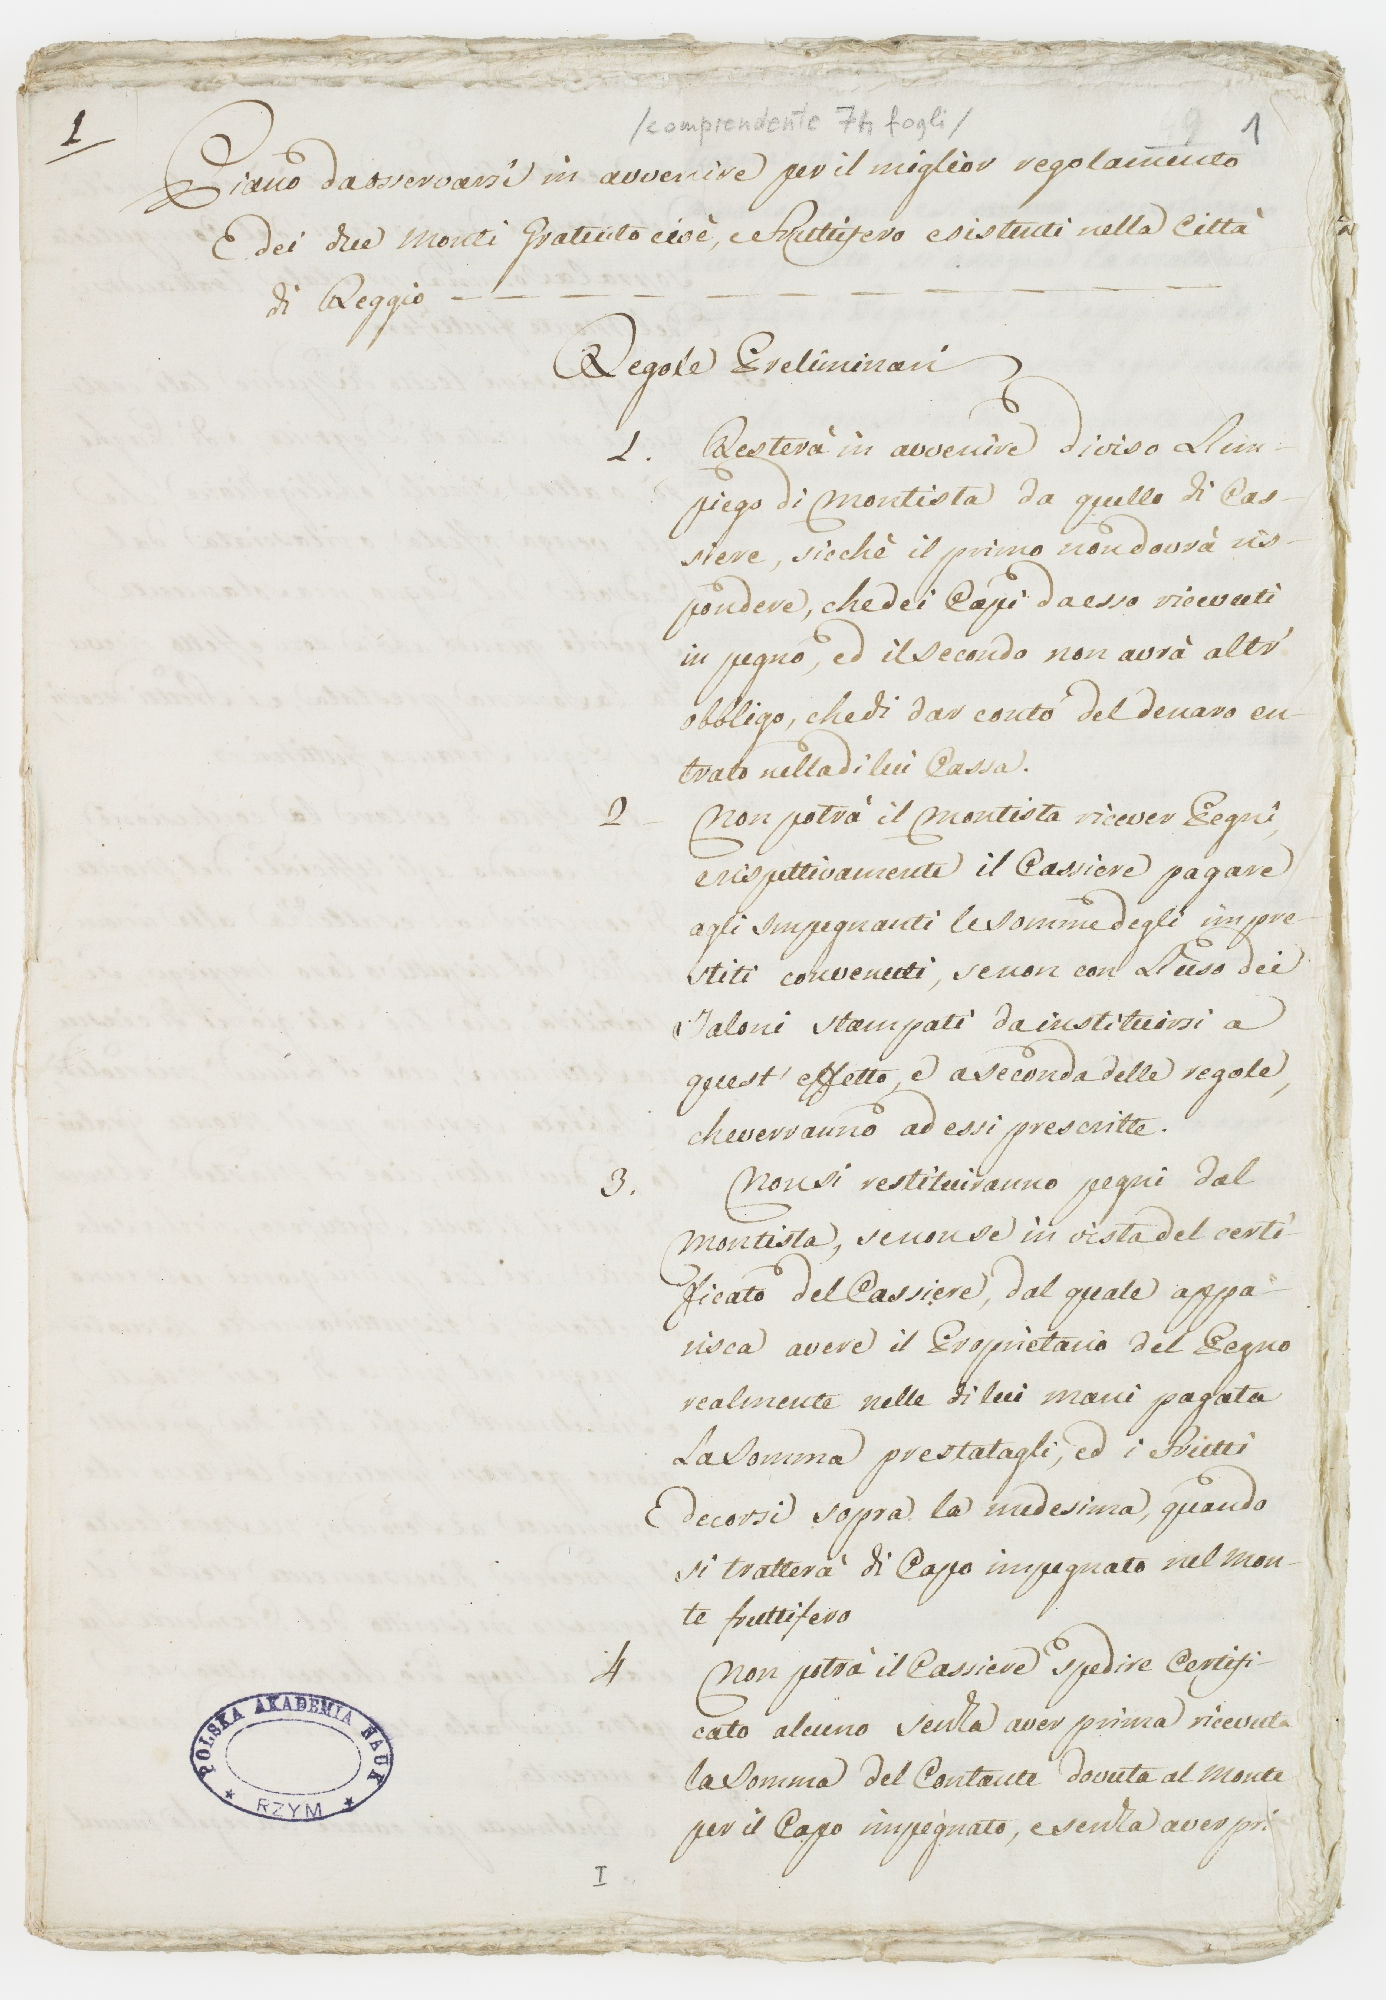 1
/comprendente 74 fogli/
1
Piano da osservarsi in avvenire per il miglior regolamento
dei due Monti Gratuito cioè, e Fruttifero esistenti nella Città
di Reggio
Regole Preliminari
1. Resterà in avvenire diviso L'im-
piego di Montista da quello di Cas-
siere, sicchè il primo non dovrà ris-
pondere, che dei Capi da esso ricevuti
in pegno, ed il secondo non avrà altr'
obbligo, che di dar conto del denaro en-
trato nella di lui Cassa.
2 Non potrà il Montista ricever Pegni,
e rispettivamente il Cassiere pagare
agli Impegnanti le somme degli impre-
stiti convenuti, se non con L'uso dei
Taloni stampati da instituirsi a
quest' effetto, e a seconda delle regole,
che verranno ad essi prescritte.
3. Non si restituiranno pegni dal
Montista, se non se in vista del certi-
ficato del Cassiere, dal quale appa-
risca avere il Proprietario del Pegno
realmente nelle di lui mani pagata
La Somma prestatagli, ed i Frutti
decorsi sopra la medesima, quando
si tratterà di Capo impegnato nel Mon-
te fruttifero
4 Non potrà il Cassiere spedire Certifi-
cato alcuno senza aver prima ricevuta
la Somma del Contante dovuta al Monte
per il Capo impegnato, e senza aver pri
POLSKA AKADEMIA NAUK
* RZYM *
I